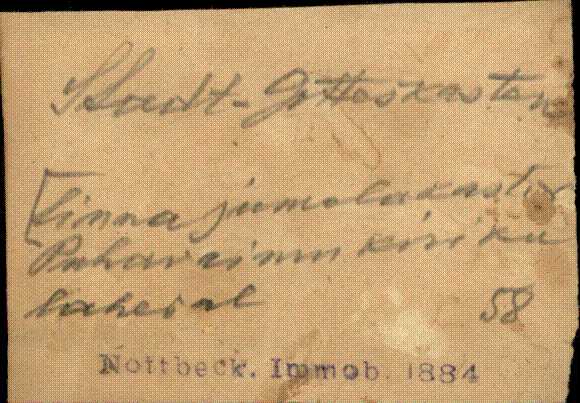 Stadt-Gotteskasten
[Linna jumalakastn
Pühavaimu kiriku
lahedal 58
Nottbeck. Immob. 1884